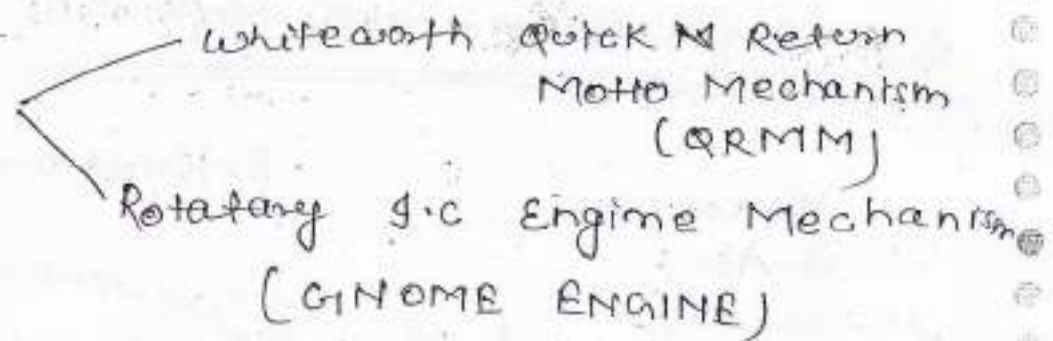 Whiteworth Quick N Return
Motto Mechanism
(QRMM)
Rotatary I.C Engime Mechanism
(GNOME ENGINE)